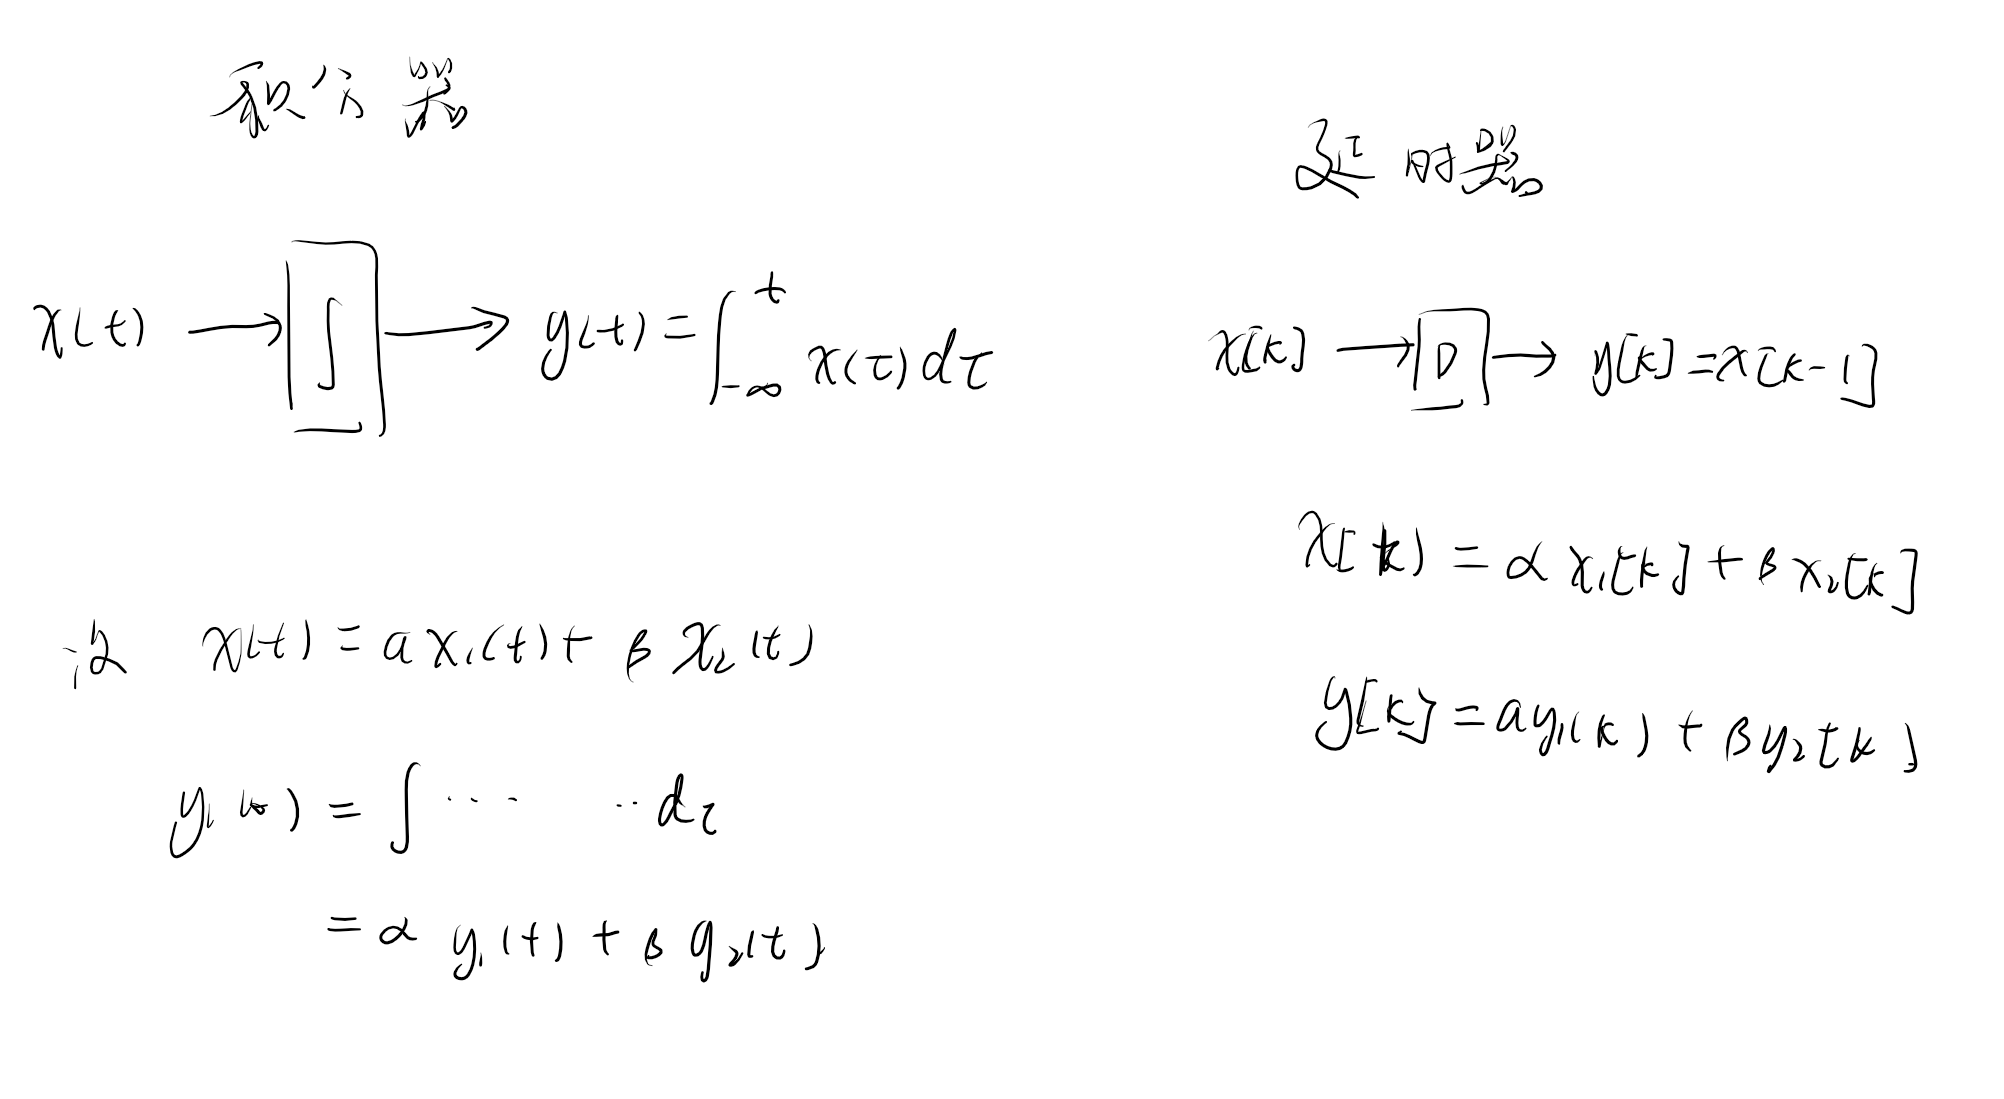 积分器
x(t) → ∫ → y(t) = ∫_{-∞}^{t} x(τ) dτ
设 x(t) = a x₁(t) + β x₂(t)
y₁(t) = ∫ ... .. dτ
= α y₁(t) + β y₂(t)
延时器
x[k] → D → y[k] = x[k-1]
x[k) = α x₁[k] + β x₂[k]
y[k] = a y₁(k) + β y₂[k]